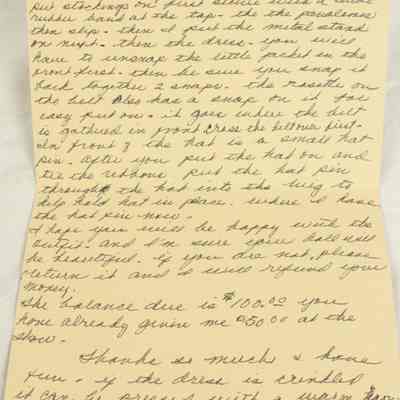 put stockings on first secure with a small
rubber band at the top - the the pantaloons
then slip - then I put the metal stand
on next - then the dress - you will
have to unsnap the little jacket in the
front first - then be sure you snap it
back together 2 snaps - the rosette on
the belt also has a snap on it for
easy put on - it goes where the belt
is gathered in front cross the belt over first -
In front of the hat is a small hat
pin - after you put the hat on and
tie the ribbons put the hat pin
through the hat into the wig to
help hold hat in place. where I have
the hat pin now -
I hope you will be happy with the
outfit - and I'm sure your doll will
be beautiful - if you are not, please
return it and I will refund your
money.
The balance due is $100.00 you
have already given me $50.00 at the
show -
Thanks so much & have
fun - if the dress is crinkled
it can be pressed with a warm iron